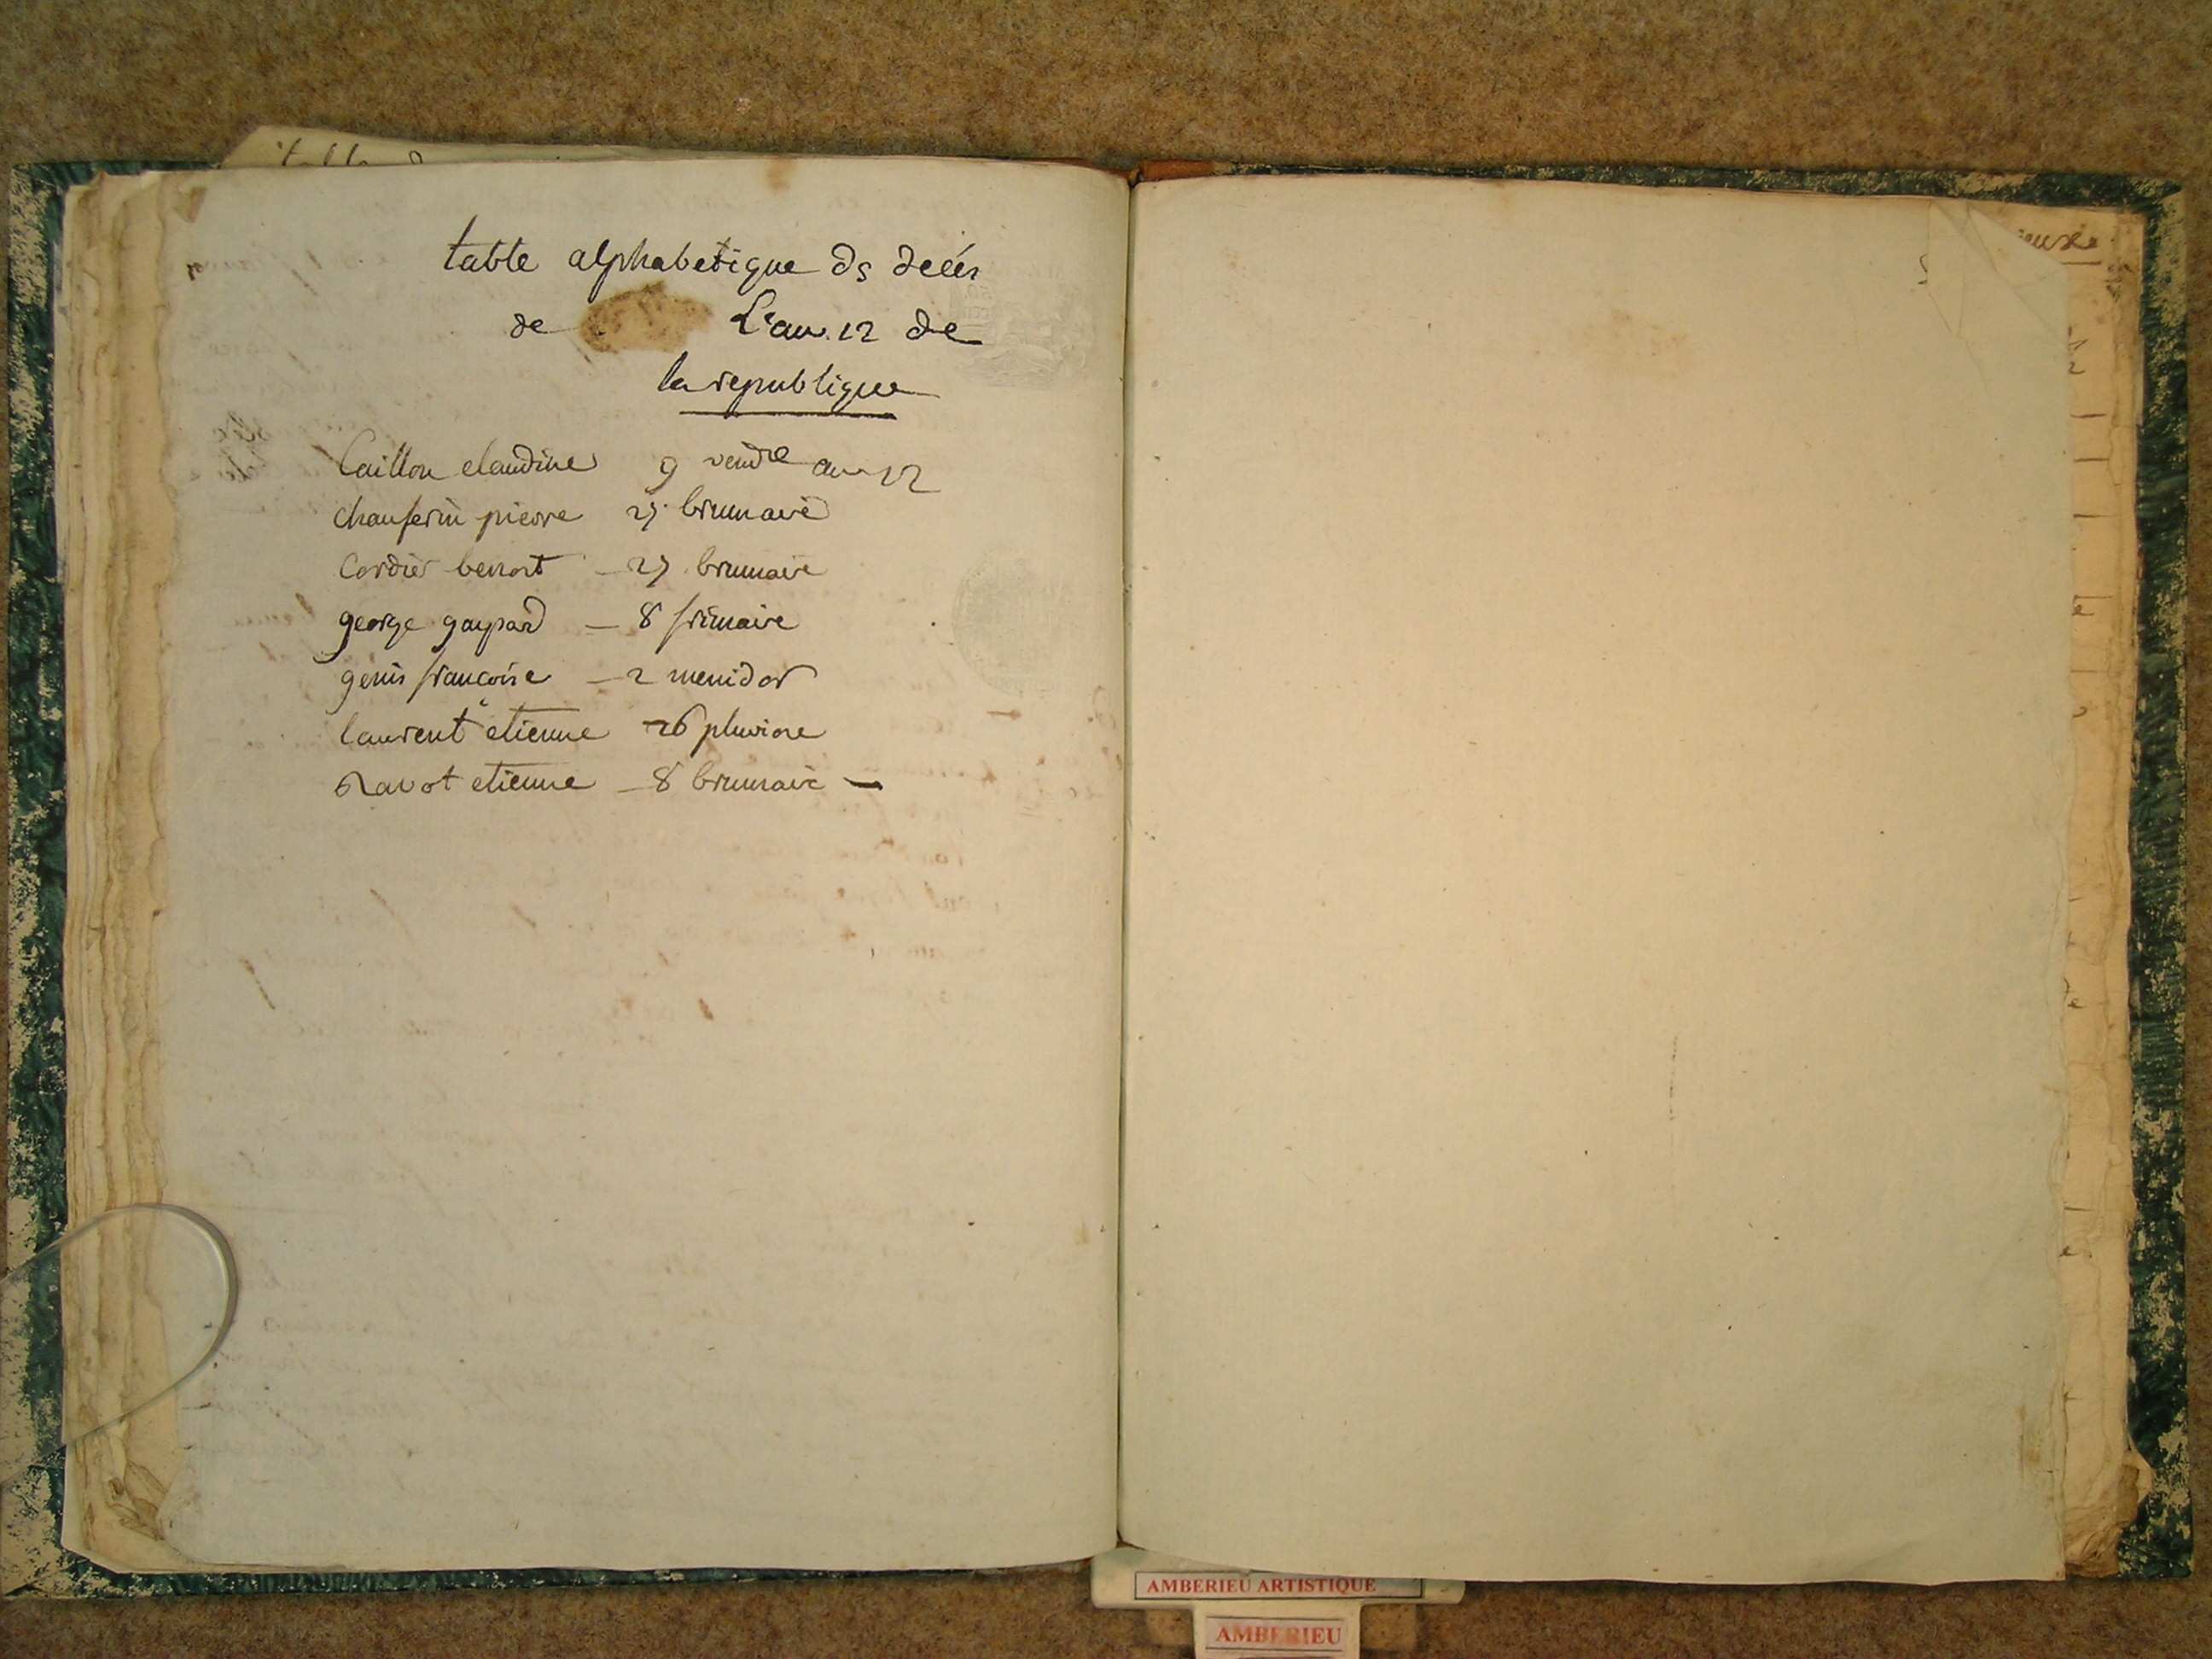 table alphabetique ds décés
de L'an 12 de
la republique
Caillon claudine 9 vendre an 12
chanferin pierre 27 brumaire
Cordier benoit - 27 brumaire
george gaspard - 8 frimaire
genis francoise - 2 messidor
laurent etienne - 26 pluviose
Ravot etienne - 8 brumaire -
AMBERIEU ARTISTIQUE
AMBERIEU